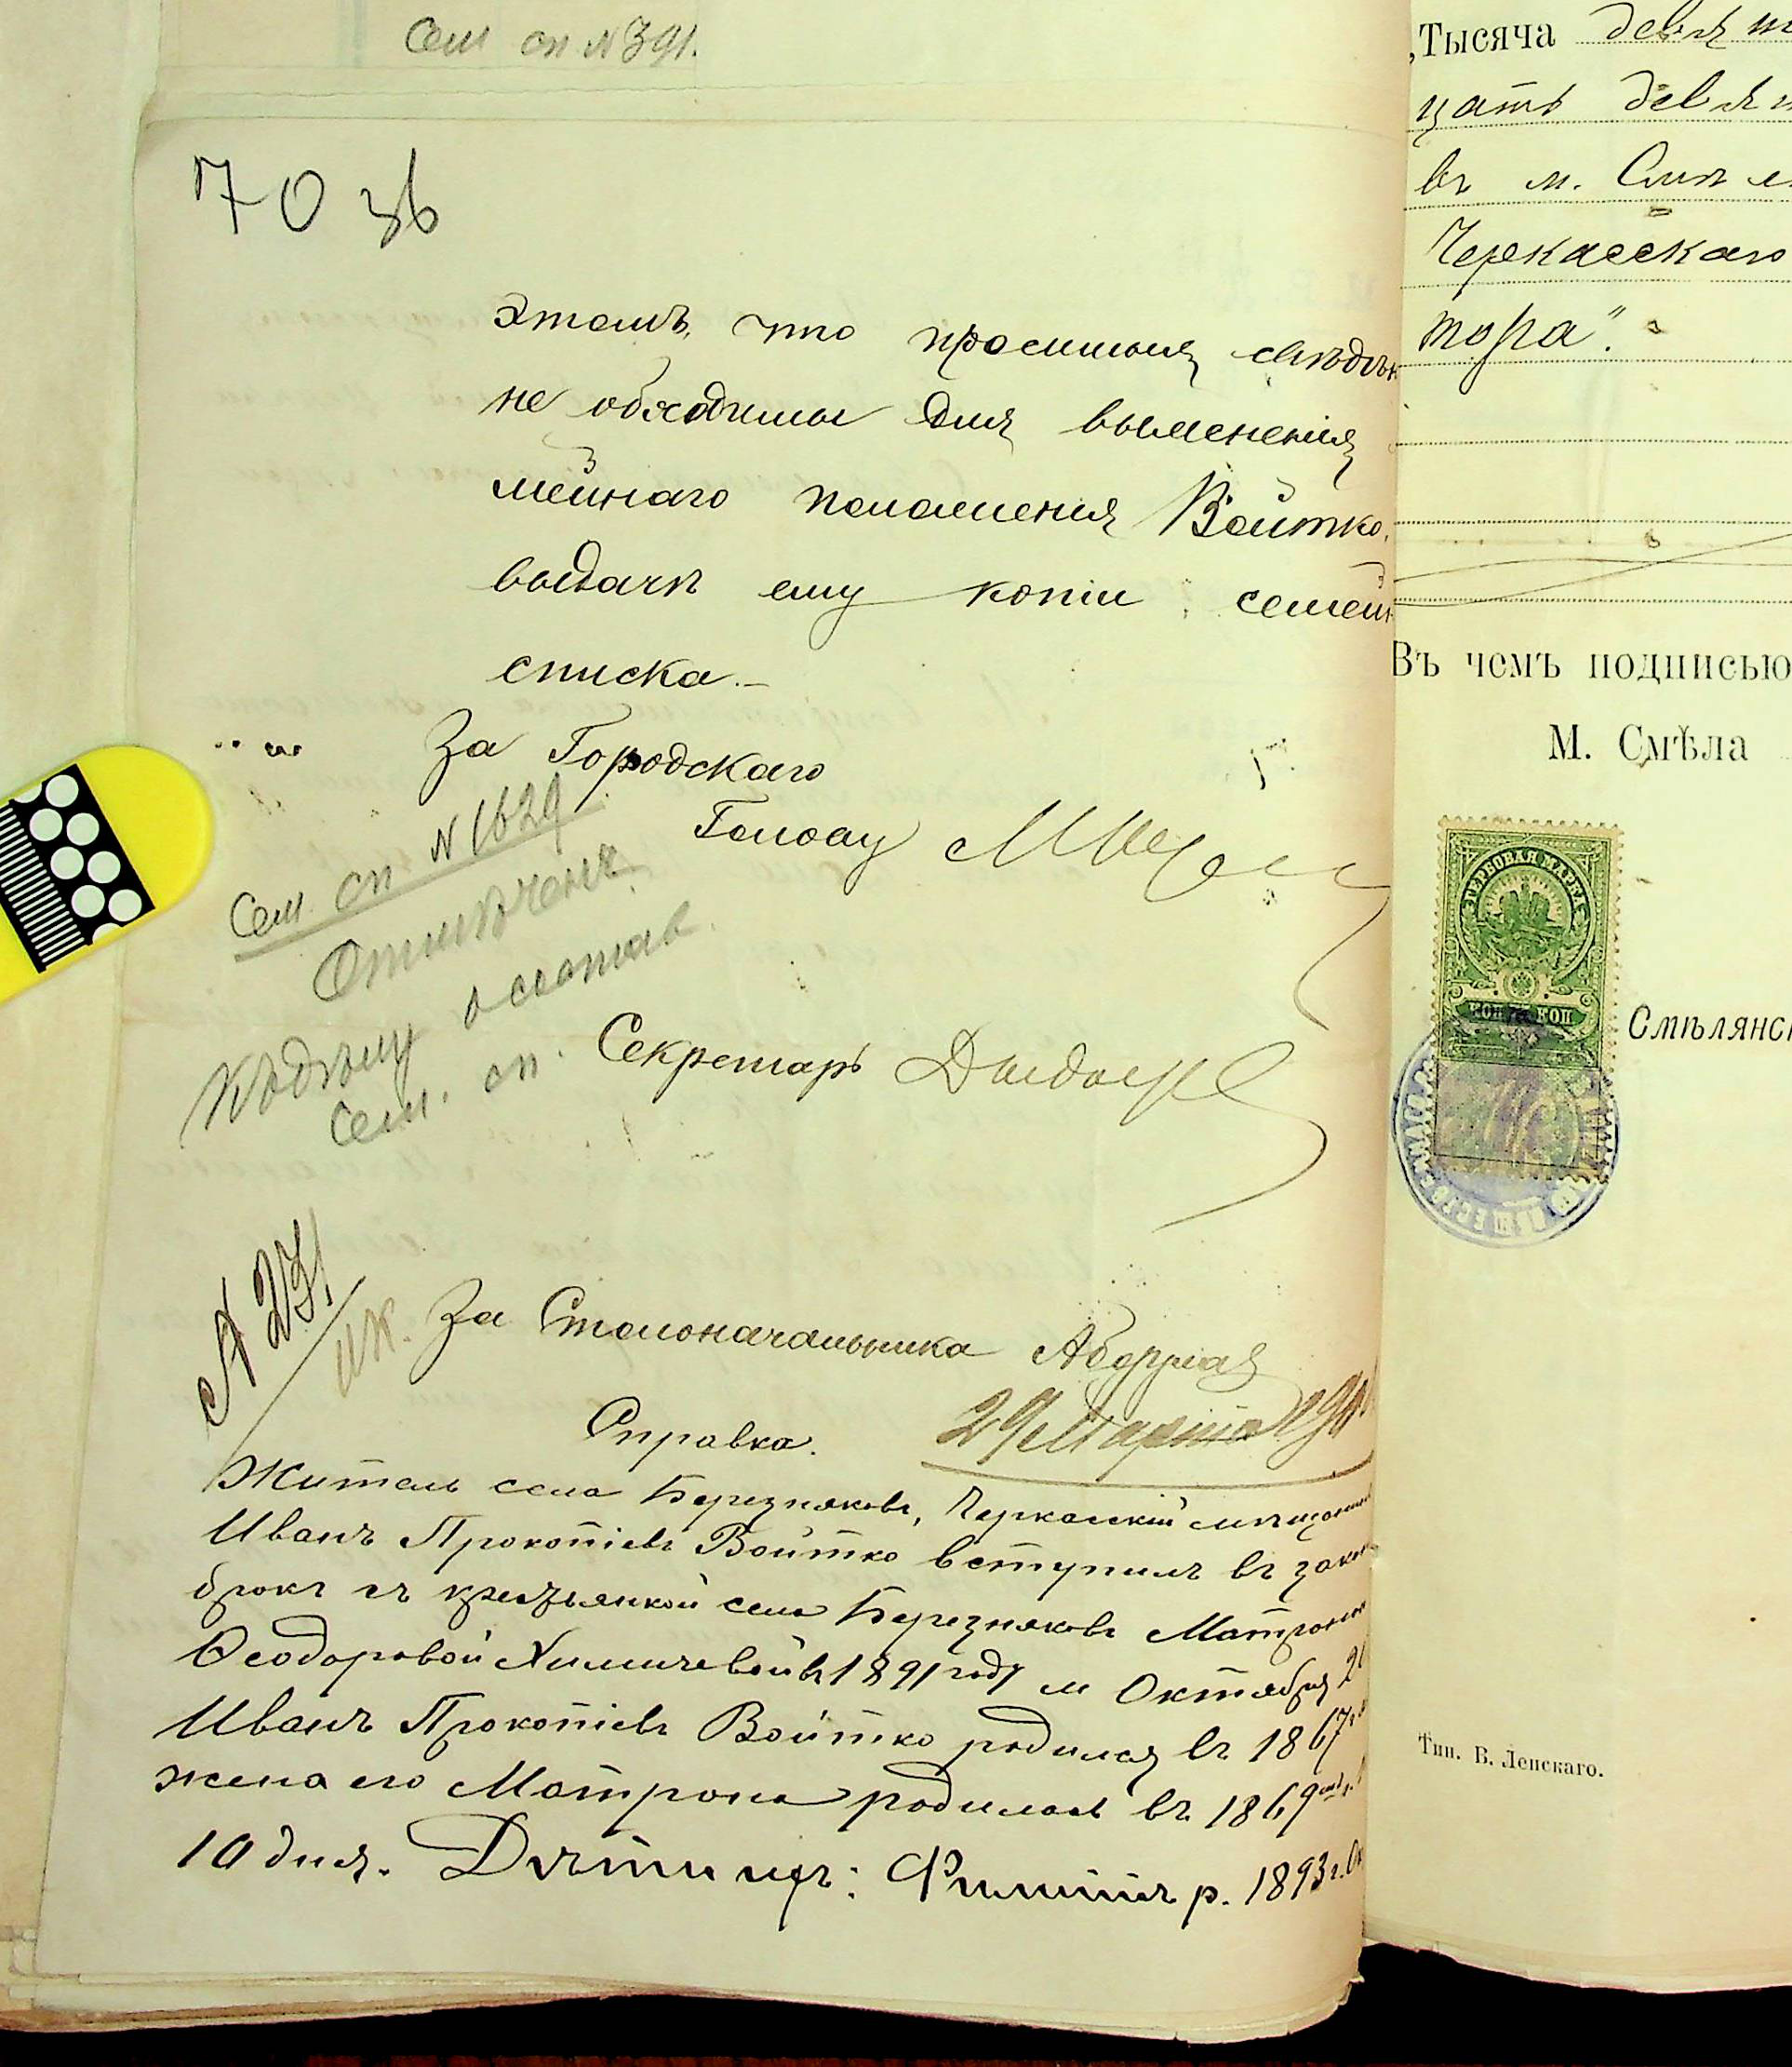 Сем сп N 391.
70 зв
этомъ, что просимыя свѣдѣн
не обходимы для выясненія
мейнаго положенія Войтко,
выдачи ему копіи семейн
списка.—
За Городскаго
Голову
Сем. сп N 1629
Отмѣчен
о состав.
Сем. сп.
Секретарь
№ 271
За Столоначальника
Справка. 29 Марта 190
Житель села Березняковъ, Черкасскій мѣщан
Иванъ Прокопіевъ Войтко вступилъ въ закон
бракъ съ крестьянкой села Березняковъ Матрон
Ѳеодоровой Химичевой въ 1891 году м Октября 2
Иванъ Прокопіевъ Войтко родился въ 1867 г.
жена его Матрона родилась въ 1869
10 дня. Дѣти ихъ: Филиппъ р. 1893 г. Ок
„Тысяча девят
цать девят
въ м. Смѣл
Черкасскаго
тора".
Въ чемъ подписью
М. Смѣла
ГЕРБОВАЯ МАРКА
КОП КОП
Смѣлянск
Тип. В. Ленскаго.